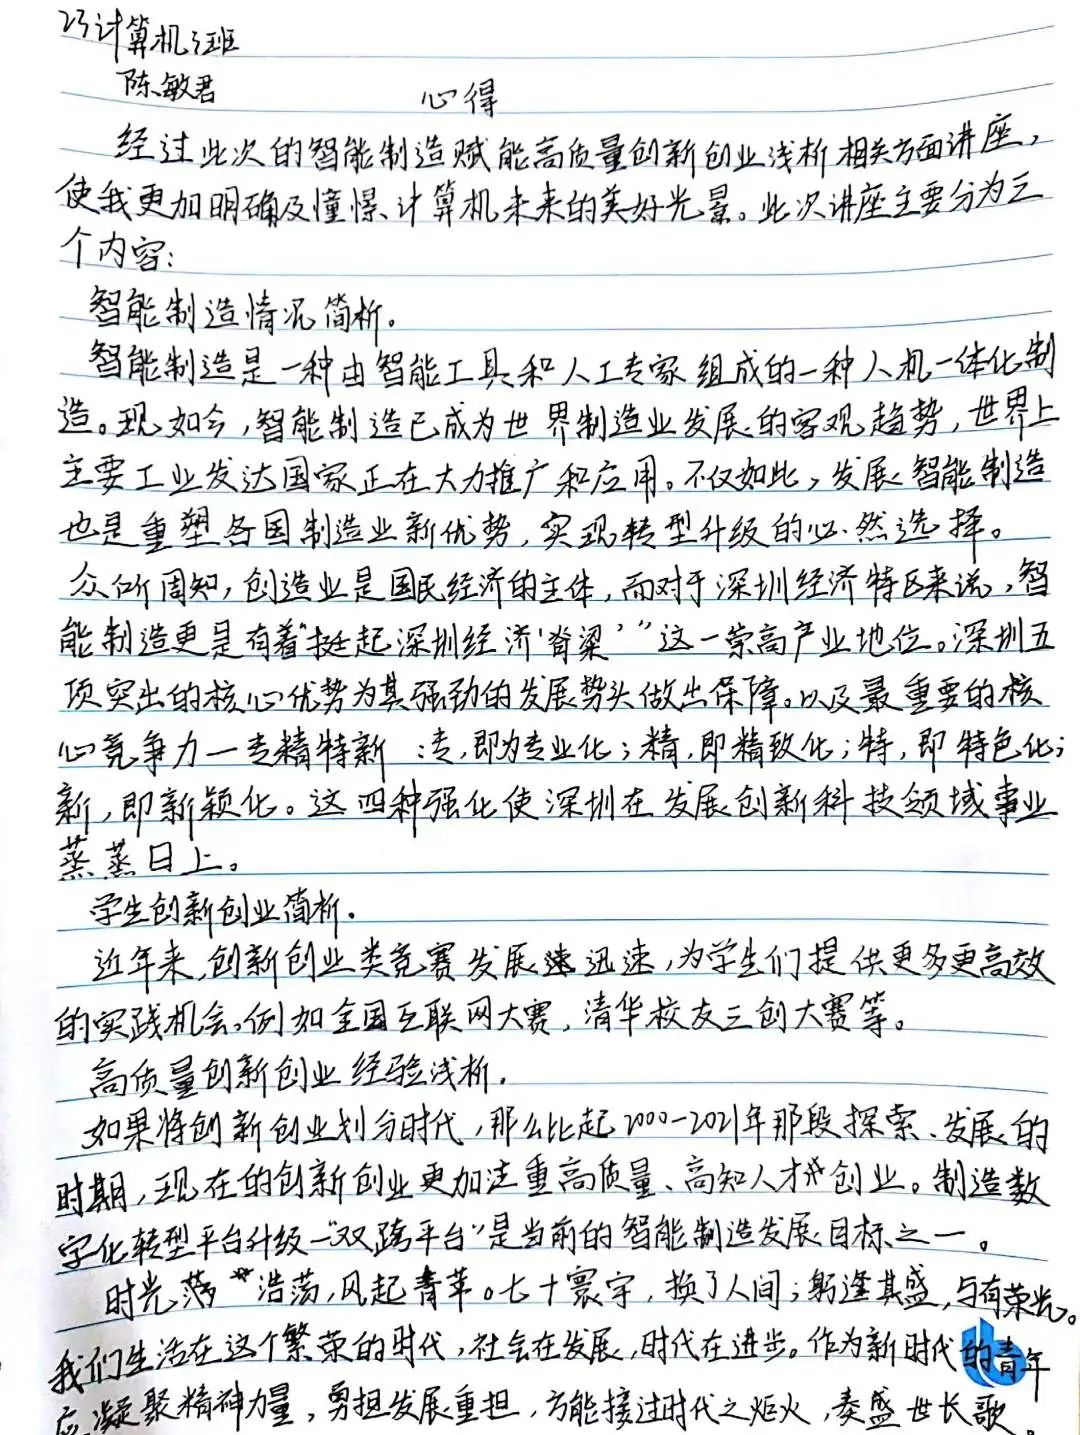 23计算机3班
陈敏君
心得
经过此次的智能制造赋能高质量创新创业浅析相关方面讲座，
使我更加明确及憧憬计算机未来的美好光景。此次讲座主要分为三
个内容：
智能制造情况简析。
智能制造是一种由智能工具和人工专家组成的一种人机一体化制
造。现如今，智能制造已成为世界制造业发展的客观趋势，世界上
主要工业发达国家正在大力推广和应用。不仅如此，发展智能制造
也是重塑各国制造业新优势，实现转型升级的必然选择。
众所周知，创造业是国民经济的主体，而对于深圳经济特区来说，智
能制造更是有着“挺起深圳经济‘脊梁’”这一崇高产业地位。深圳五
项突出的核心优势为其强劲的发展势头做出保障。以及最重要的核
心竞争力—专精特新：专，即为专业化；精，即精致化；特，即特色化；
新，即新颖化。这四种强化使深圳在发展创新科技领域事业
蒸蒸日上。
学生创新创业简析。
近年来，创新创业类竞赛发展迅速，为学生们提供更多更高效
的实践机会。例如全国互联网大赛，清华校友三创大赛等。
高质量创新创业经验浅析。
如果将创新创业划分时代，那么比起2000-2021年那段探索、发展的
时期，现在的创新创业更加注重高质量、高知人才创业。制造数
字化转型平台升级—“双跨平台”是当前的智能制造发展目标之一。
时光浩荡，风起青苹。七十寰宇，换了人间；躬逢其盛，与有荣光。
我们生活在这个繁荣的时代，社会在发展，时代在进步。作为新时代的青年
应凝聚精神力量，勇担发展重担，方能接过时代之炬火，奏盛世长歌。